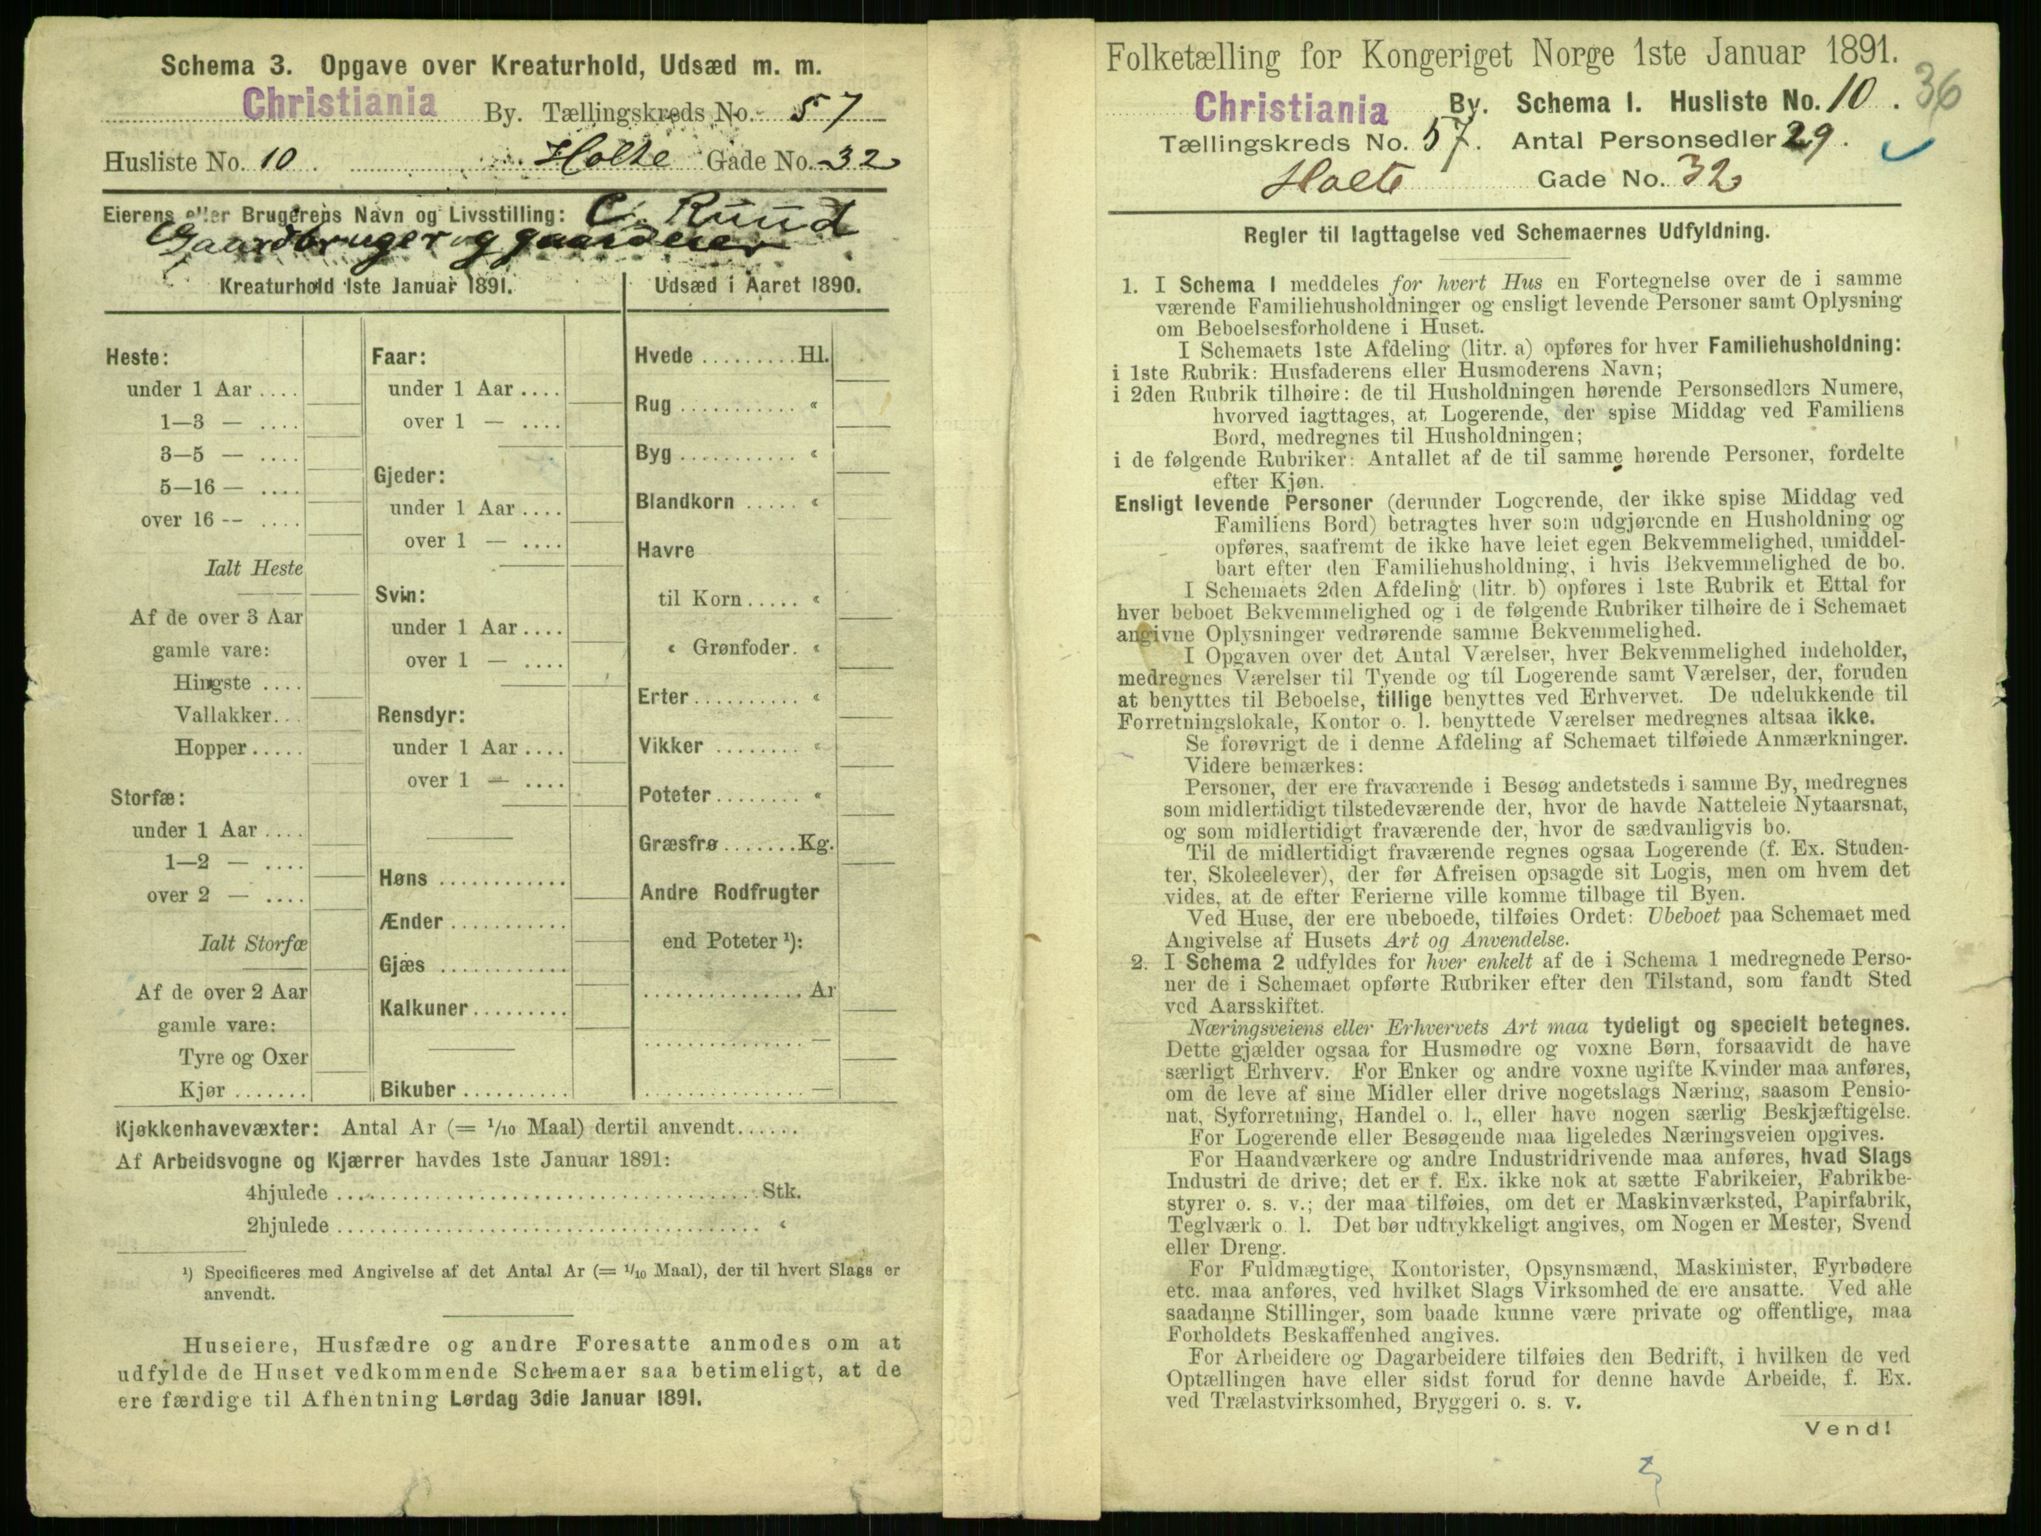 Schema 3. Opgave over Kreaturhold, Udsæd m. m.
Christiania By. Tællingskreds No. 57
Husliste No. 10. Holte Gade No. 32
Eierens eller Brugerens Navn og Livsstilling: C. Ruud
Gaardbruger og gaardeier
Kreaturhold 1ste Januar 1891.
Heste:
under 1 Aar ....
1—3 — ....
3—5 — ....
5—16 — ....
over 16 -- ....
Ialt Heste
Af de over 3 Aar
gamle vare:
Hingste ....
Vallakker...
Hopper.....
Storfæ:
under 1 Aar ....
1—2 — ....
over 2 — ....
Ialt Storfæ
Af de over 2 Aar
gamle vare:
Tyre og Oxer
Kjør .......
Faar:
under 1 Aar ....
over 1 — ....
Gjeder:
under 1 Aar ....
over 1 — ....
Svin:
under 1 Aar ....
over 1 — ....
Rensdyr:
under 1 Aar ....
over 1 — ....
Høns ............
Ænder ...........
Gjæs ............
Kalkuner .........
Bikuber ..........
Udsæd i Aaret 1890.
Hvede .........Hl.
Rug ........... «
Byg ........... «
Blandkorn ..... «
Havre
til Korn ..... «
« Grønfoder. «
Erter .......... «
Vikker ........ «
Poteter ........ «
Græsfrø .......Kg.
Andre Rodfrugter
end Poteter ¹):
............... Ar
............... —
............... —
Kjøkkenhavevæxter: Antal Ar (= 1/10 Maal) dertil anvendt......
Af Arbeidsvogne og Kjærrer havdes 1ste Januar 1891:
4hjulede ........................................ Stk.
2hjulede ........................................ «
¹) Specificeres med Angivelse af det Antal Ar (= 1/10 Maal), der til hvert Slags er
anvendt.
Huseiere, Husfædre og andre Foresatte anmodes om at
udfylde de Huset vedkommende Schemaer saa betimeligt, at de
ere færdige til Afhentning Lørdag 3die Januar 1891.
Folketælling for Kongeriget Norge 1ste Januar 1891.
Christiania By. Schema 1. Husliste No. 10. 36
Tællingskreds No. 57. Antal Personsedler 29.
Holte Gade No. 32
Regler til Iagttagelse ved Schemaernes Udfyldning.
1. I Schema 1 meddeles for hvert Hus en Fortegnelse over de i samme
værende Familiehusholdninger og ensligt levende Personer samt Oplysning
om Beboelsesforholdene i Huset.
I Schemaets 1ste Afdeling (litr. a) opføres for hver Familiehusholdning:
i 1ste Rubrik: Husfaderens eller Husmoderens Navn;
i 2den Rubrik tilhøire: de til Husholdningen hørende Personsedlers Numere,
hvorved iagttages, at Logerende, der spise Middag ved Familiens
Bord, medregnes til Husholdningen;
i de følgende Rubriker: Antallet af de til samme hørende Personer, fordelte
efter Kjøn.
Ensligt levende Personer (derunder Logerende, der ikke spise Middag ved
Familiens Bord) betragtes hver som udgjørende en Husholdning og
opføres, saafremt de ikke have leiet egen Bekvemmelighed, umiddel-
bart efter den Familiehusholdning, i hvis Bekvemmelighed de bo.
I Schemaets 2den Afdeling (litr. b) opføres i 1ste Rubrik et Ettal for
hver beboet Bekvemmelighed og i de følgende Rubriker tilhøire de i Schemaet
angivne Oplysninger vedrørende samme Bekvemmelighed.
I Opgaven over det Antal Værelser, hver Bekvemmelighed indeholder,
medregnes Værelser til Tyende og til Logerende samt Værelser, der, foruden
at benyttes til Beboelse, tillige benyttes ved Erhvervet. De udelukkende til
Forretningslokale, Kontor o. l. benyttede Værelser medregnes altsaa ikke.
Se forøvrigt de i denne Afdeling af Schemaet tilføiede Anmærkninger.
Videre bemærkes:
Personer, der ere fraværende i Besøg andetsteds i samme By, medregnes
som midlertidigt tilstedeværende der, hvor de havde Natteleie Nytaarsnat,
og som midlertidigt fraværende der, hvor de sædvanligvis bo.
Til de midlertidigt fraværende regnes ogsaa Logerende (f. Ex. Studen-
ter, Skoleelever), der før Afreisen opsagde sit Logis, men om hvem det
vides, at de efter Ferierne ville komme tilbage til Byen.
Ved Huse, der ere ubeboede, tilføies Ordet: Ubeboet paa Schemaet med
Angivelse af Husets Art og Anvendelse.
2. I Schema 2 udfyldes for hver enkelt af de i Schema 1 medregnede Perso-
ner de i Schemaet opførte Rubriker efter den Tilstand, som fandt Sted
ved Aarsskiftet.
Næringsveiens eller Erhvervets Art maa tydeligt og specielt betegnes.
Dette gjælder ogsaa for Husmødre og voxne Børn, forsaavidt de have
særligt Erhverv. For Enker og andre voxne ugifte Kvinder maa anføres,
om de leve af sine Midler eller drive nogetslags Næring, saasom Pensio-
nat, Syforretning, Handel o. l., eller have nogen særlig Beskjæftigelse.
For Logerende eller Besøgende maa ligeledes Næringsveien opgives.
For Haandværkere og andre Industridrivende maa anføres, hvad Slags
Industri de drive; det er f. Ex. ikke nok at sætte Fabrikeier, Fabrikbe-
styrer o. s. v.; der maa tilføies, om det er Maskinværksted, Papirfabrik,
Teglværk o. l. Det bør udtrykkeligt angives, om Nogen er Mester, Svend
eller Dreng.
For Fuldmægtige, Kontorister, Opsynsmænd, Maskinister, Fyrbødere
etc. maa anføres, ved hvilket Slags Virksomhed de ere ansatte. Ved alle
saadanne Stillinger, som baade kunne være private og offentlige, maa
Forholdets Beskaffenhed angives.
For Arbeidere og Dagarbeidere tilføies den Bedrift, i hvilken de ved
Optællingen have eller sidst forud for denne havde Arbeide, f. Ex.
ved Trælastvirksomhed, Bryggeri o. s. v.
Vend!